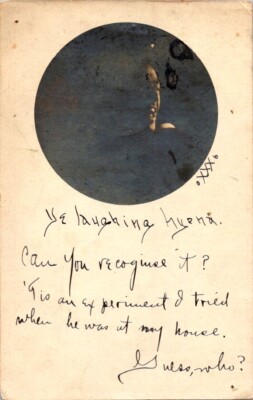 °XXX°
Ye laughing hyena.
Can you recognise it?
'Tis an experiment I tried
when he was at my house.
Guess, who?